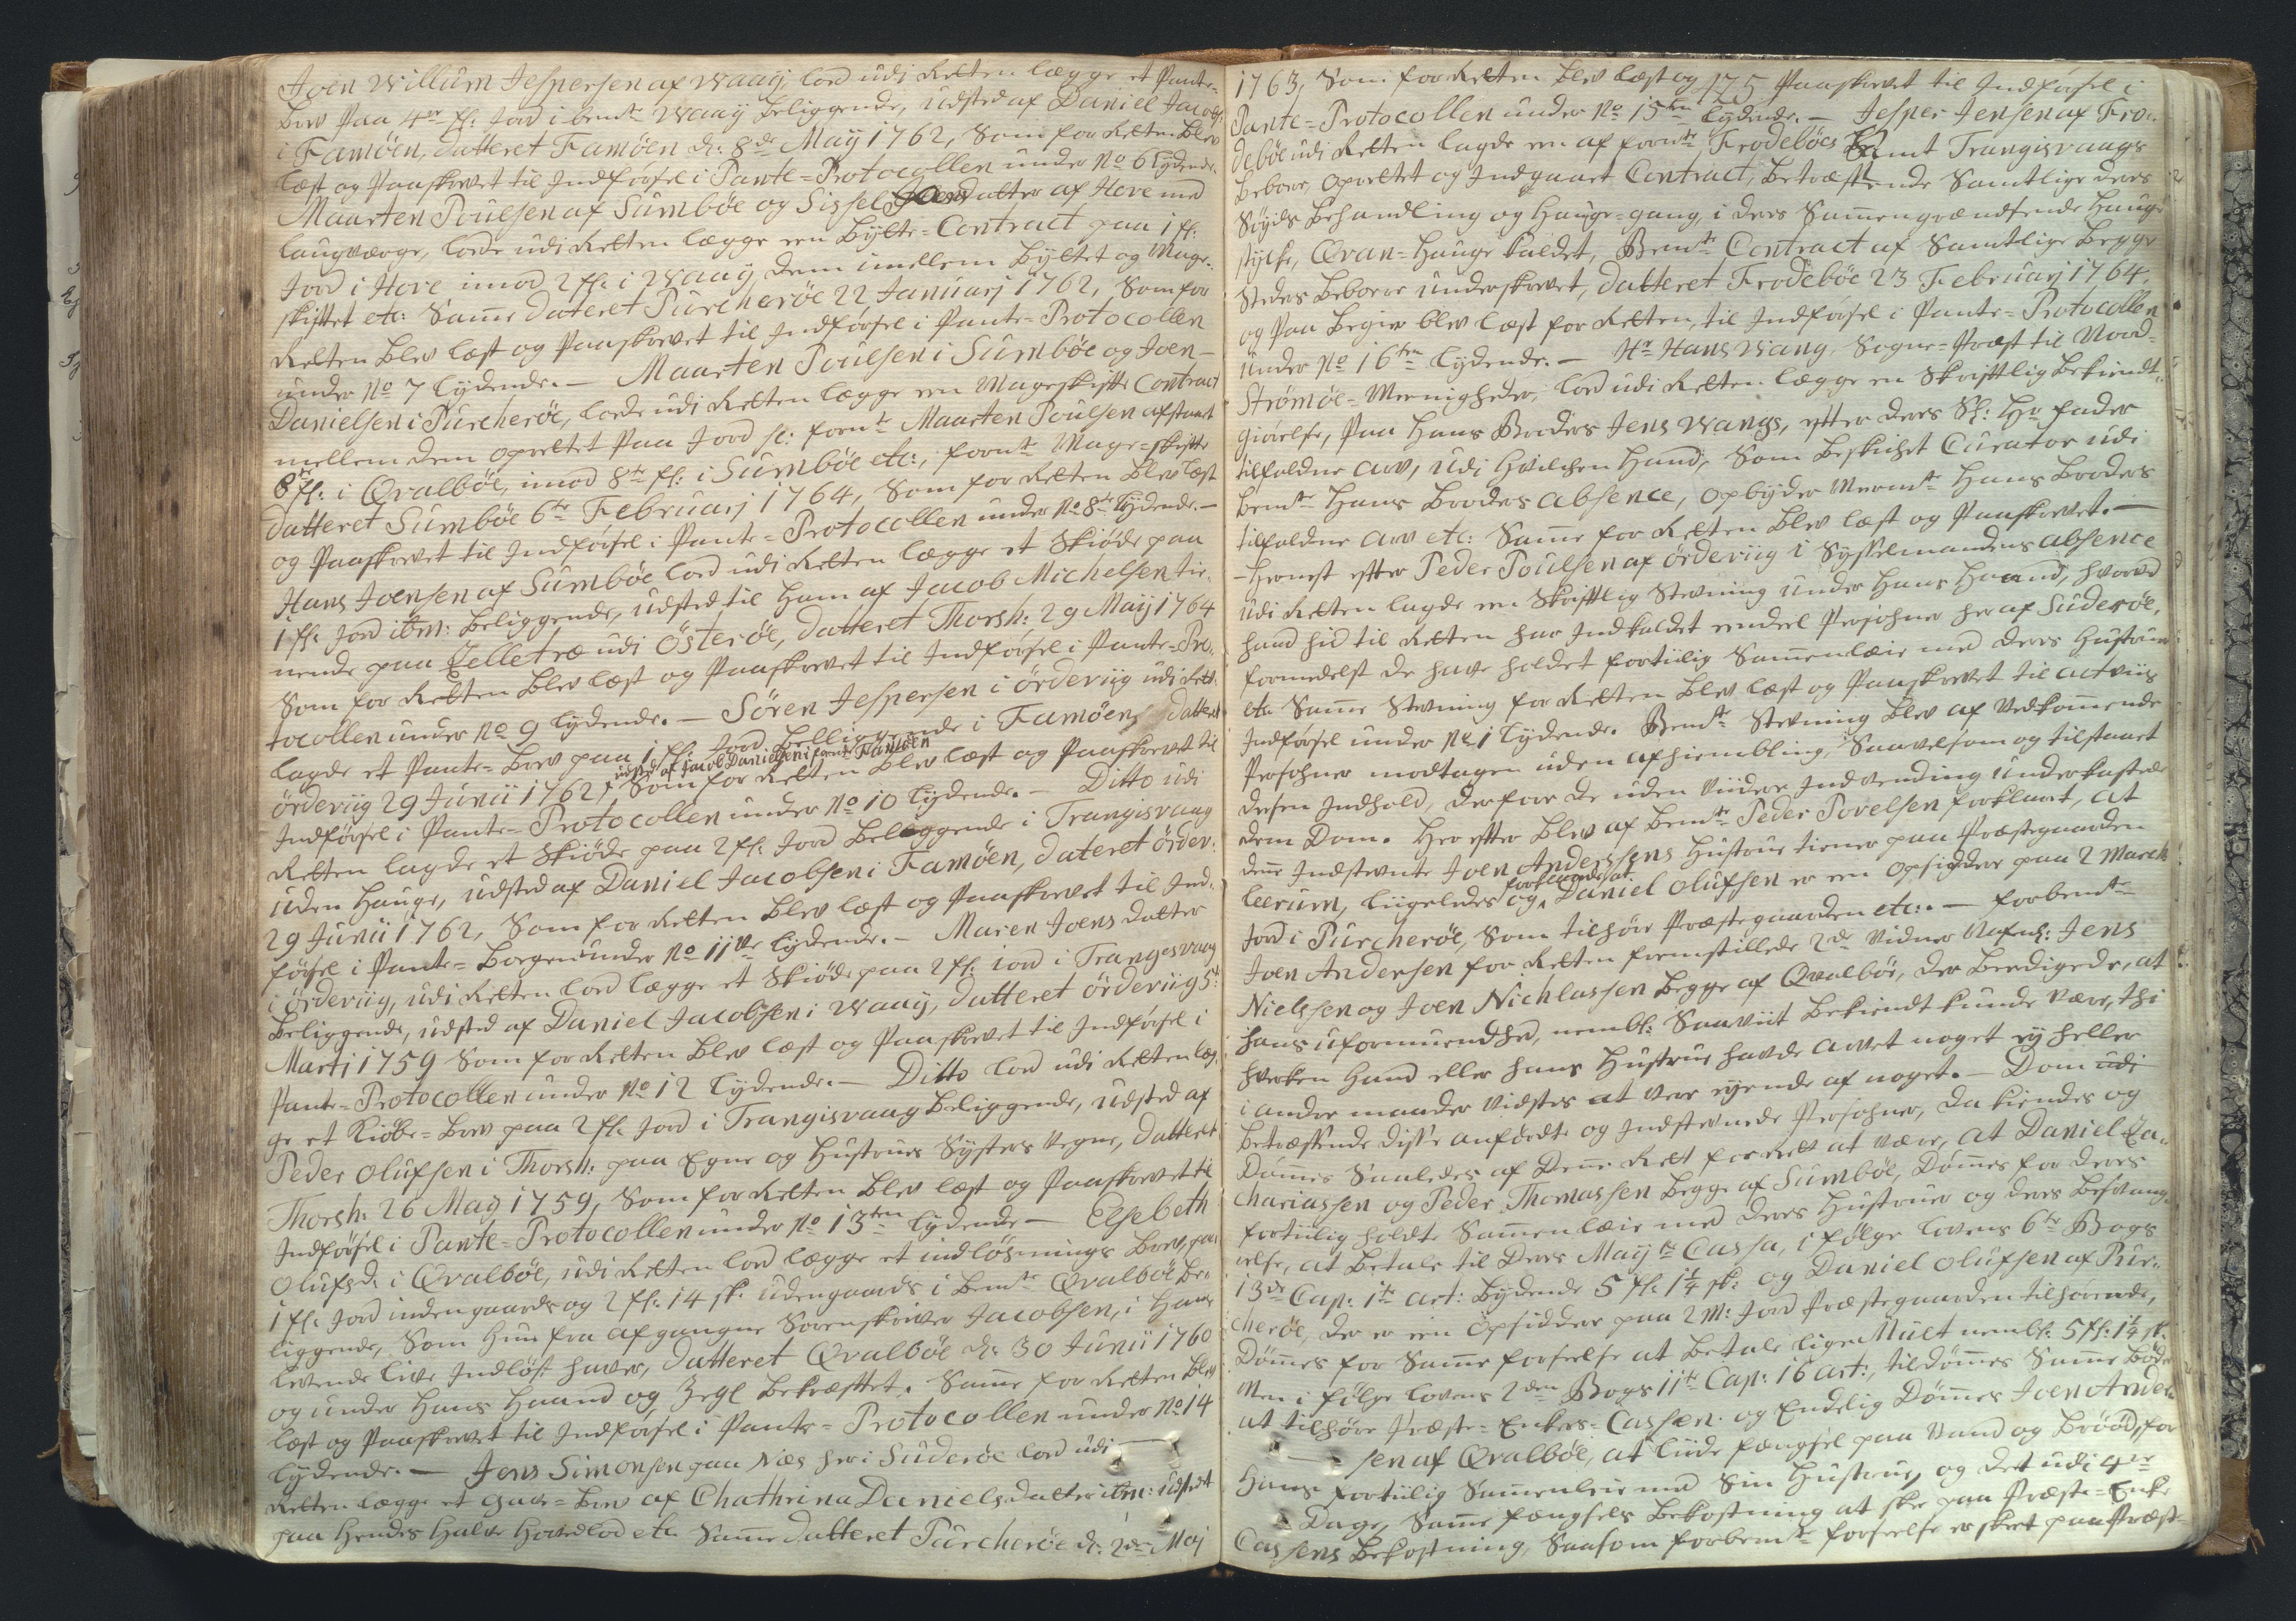 Joen Willum Jespersen af Waaij, lod udi Retten lægge et Pante-
Brev Paa 4re fl: Jord i bemte Waaij beliggende, udsted af Daniel Jacobs:
i Famöen, datteret Famöen d: 8de Maij 1762, Som for Retten blev
læst og Paaskrevet til Indförsel i Pante-Protocollen under No 6 lydende.
Maarten Poulsen af Sumböe og Sissel Joensdatter af Hove med
laugværge, lode udi Retten lægge een Bytte-Contract paa 1 fl:
Jord i Hove imod 2 fl: i Waaij dem imellem byttet og Mage-
skiftet etc: Samme dateret Purcheröe 22 Januarj 1762, Som for
Retten blev læst og Paaskrevet til Indförsel i Pante-Protocollen
under No 7 lydende. — Maarten Poulsen i Sumböe og Joen
Danielsen i Purcheröe, lode udi Retten lægge een Mageskifte Contract
mellem dem oprettet Paa Jord sc: fornte Maarten Poulsen afstaaet
8te fl: i Qvalböe, imod 8te fl: i Sumböe etc:, fornte Mage-skifte
datteret Sumböe 6te Februarj 1764, Som for Retten blev læst
og Paaskrevet til Indförsel i Pante-Protocollen under No 8te lydende. —
Hans Joensen af Sumböe lod udi Retten lægge et Skiöde paa
1 fl: Jord ibm: beliggende, udsted til ham af Jacob Michelsen tie-
nende paa Zelletræ udi Österöe, datteret Thorsh: 29 Maij 1764
Som for Retten blev læst og Paaskrevet til Indförsel i Pante-Pro-
tocollen under No 9 lydende. — Sören Jespersen i Örderviig udi Rett:
lagde et Pante-Brev paa 1 fl: Jord beliggende i Famöen, datteret
udsted af Jacob Danielsen i fornte Famöen
Örderviig 29 Junii 1762, Som for Retten blev læst og Paaskrevet til
Indförsel i Pante-Protocollen under No 10 lydende. — Ditto udi
Retten lagde et Skiöde paa 2 fl: Jord beliggende i Trangisvaag
uden Hauge, udsted af Daniel Jacobsen i Famöen, dateret Örder:
29 Junii 1762, Som for Retten blev læst og Paaskrevet til Ind-
försel i Pante-Borgen under No 11te lydende. — Maren Joens datter
i Örderviig, udi Retten lod lægge et Skiöde paa 2 fl: iord i Trangesvaag
beliggende, udsted af Daniel Jacobsen i Waaij, datteret Örderviig 5te
Martj 1759 Som for Retten blev læst og Paaskrevet til Indförsel i
Pante-Protocollen under No 12 lydende. — Ditto lod udi Retten læg-
ge et Kiöbe-Brev paa 2 fl: Jord i Trangisvaag beliggende, udsted af
Peder Olufsen i Thorsh: paa Egne og Hustrues Systers Vegne, datteret
Thorsh: 26 Maij 1759, Som for Retten blev læst og Paaskrevet til
Indförsel i Pante-Protocollen under No 13ten lydende — Elsebeth
Olufsd: i Qvalböe, udi Retten lod lægge et indlösnings Brev, paa
1 fl: Jord indengaards og 2 fl: 14 sk: udengaards i bemte Qvalböe be-
liggende, Som hun fra afgangne Sorenskriver Jacobsen, i hans
levende live Indlöst haver, datteret Qvalböe d: 30 Junii 1760
og under hans Haand og Zegl bekræftet. Samme for Retten blev
læst og Paaskrevet til Indförsel i Pante-Protocollen under No 14
lydende. — Jens Simonsen paa Næs her i Suderöe lod udi
Retten lægge et Gave-Brev af Chathrina Danielsdatter ibm: udstedt
paa hendes halve Hovedlod etc Samme datteret Purcheröe d: 2de Maj
175
1763, Som for Retten blev læst og Paaskrevet til Indförsel i
Pante-Protocollen under No 15ten lydende. — Jesper Jensen af Fro-
deböe udi Retten lagde een af fornte Frodeböes Samt Trangisvaags
beboer, oprettet og Indgaaet Contract, betræffende Samtlige deres
Söyds behandling og Hauge-gang, i deres Sammengrændsende Hauge
stycke, Qvan-Hauge kaldet, Bemte Contract af Samtlige begge
Steders beboere underskrevet, datteret Frodeböe 23 Februarj 1764,
og Paa begier blev læst for Retten, til Indförsel i Pante-Protocollen
under No 16ten lydende. — Hr Hans Wang, Sogne-Præst til Nord-
Strömöe-Meenigheder, lod udi Retten lægge en Skriftlig bekiendt-
giörelse, Paa hans Broders Jens Wangs, efter deres Sl: Hr fader
tilfaldne arv, udi hvilchen hand, Som beskicket Curator udi
bemte hans broders absence, opbyder Meermte hans broders
tilfaldne arv etc: Samme for Retten blev læst og Paaskrevet. —
— Hernest efter Peder Poulsen af Örderviig i Sysselmandens absence
udi Retten lagde een Skriftlig Stevning under hans Haand, hvorved
hand hid til Retten har Indkaldet eendeel Persohner her af Suderöe,
formedelst de have holdet fortiilig Sammenleie med deres Hustruer
etc Samme Stevning for Retten blev læst og Paaskrevet til Actviis
Indförsel under No 1 lydende. Bemte Stevning blev af Vedkommende
Persohner modtagen uden afhiembling, Saavelsom og tilstaaet
dessen Indhold, derfore de uden viidere Indvending underkastede
dem Dom. Her efter blev af bemte Peder Povelsen forklaret, at
denne Indstevnte Joen Anderssens Hustrue tiener paa Præstegaarden
forklarede at
leerum, liigeledes og Daniel Olufsen er een Opsidder paa 2 March
Jord i Purcheröe, Som tilhör Præstegaarden etc:. — forbemte
Joen Andersen for Retten fremstillede 2de Vidner Nafnl: Jens
Nielssen og Joen Nichlassen begge af Qvalböe, der beedigede, at
hans uformuenhed, nembl: Saaviit bekiendt kunde være, thi
hverken hand eller hans Hustrue havde arvet noget ey heller
i andre maader vidstes at vere eyende af noget. — Dom udi
betræffende disse anfördte og Indstevnede Persohner, da kiendes og
Dömmes Saaledes af Denne Rett for Rett at være, at Daniel Za-
chariassen og Peder Thomassen begge af Sumböe, Dömmes for deres
fortiilig holdte Sammenleie med deres Hustruer og deres besvang-
relse, at betale til Deres Maijts Cassa, i fölge lovens 6te Bogs
13de Cap: 1te Art: lydende 5 fl: 1¼ sk: og Daniel Olufsen af Pur-
cheröe, der er een Opsidder paa 2 M: Jord Præstegaarden tilhörende,
Dömmes for Samme forseelse at betale liigen Mult nembl: 5 fl: 1¼ sk:
Men i fölge lovens 2den Bogs 11te Cap: 16 Art:, tildömmes Samme böde
at tilhöre Præste-Enkers-Cassen. og Endelig Dömmes Joen Ander-
sen af Qvalböe, at liide fængsel paa Vand og bröd, for
hans fortiilig Sammenleie med Sin Hustrue, og det udi 4re
Dage, Samme fængsels bekostning at skee paa Præste-Enke
Cassens bekostning, Saasom forbemte forseelse er skeet paa Præste-